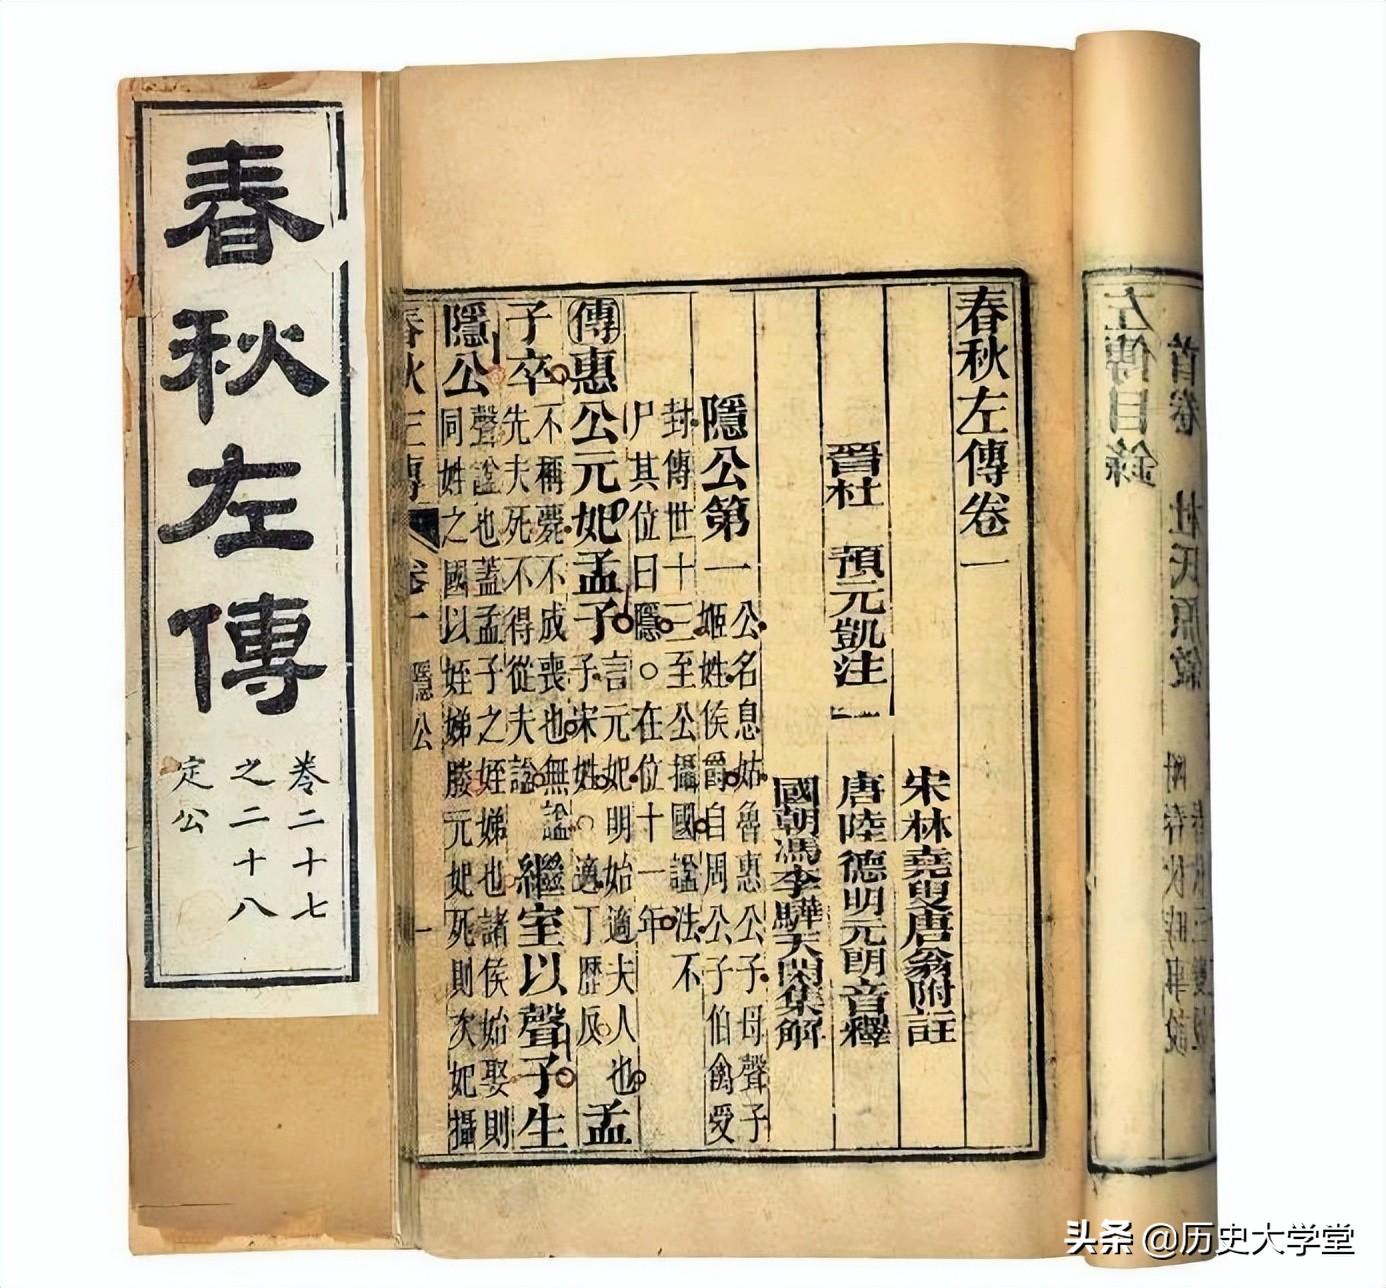 左傳目錄
首卷 杜氏原敘
附春秋時事說
春秋左傳卷一
宋林堯叟唐翁附註
晉杜 預元凱注 唐陸德明元朗音釋
國朝馮李驊天閑集解
隱公第一 公名息姑魯惠公子母聲子
姬姓侯爵自周公子伯禽受
封傳世十三至公攝國諡法不
尸其位曰隱○在位十一年
傳惠公元妃孟子 言元妃明始適夫人也
子宋姓○適丁歷反 孟
子卒 不稱薨不成喪也無諡
先夫死不得從夫諡 繼室以聲子生
隱公 聲諡也蓋孟子之姪娣也諸侯始娶則
同姓之國以姪娣媵元妃死則次妃攝
春秋三傳 卷一 隱公 一
春秋左傳
卷二十七
之二十八
定公
头条 @历史大学堂